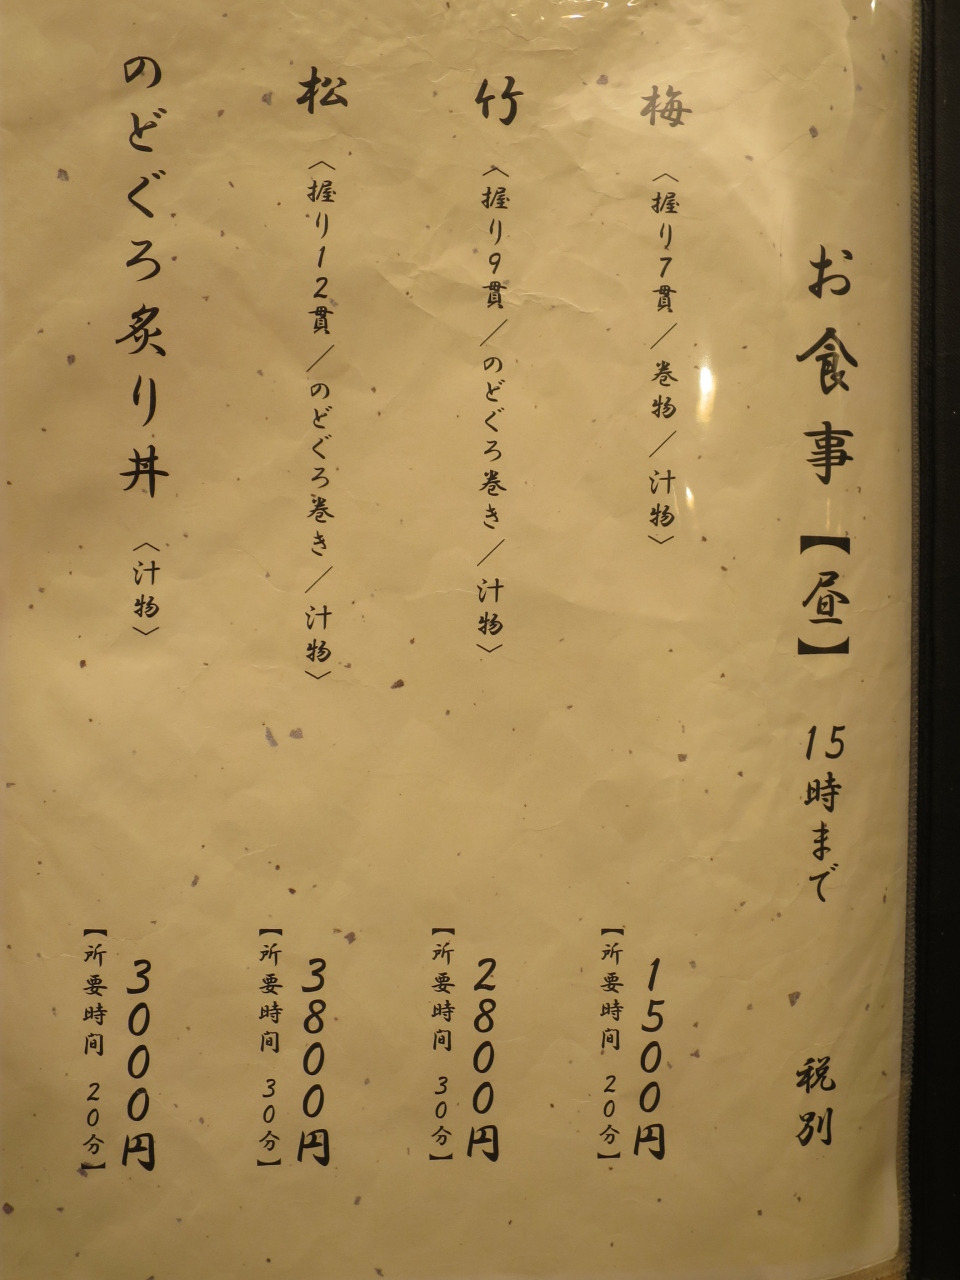 お食事【昼】 15時まで 税別
梅〈握り7貫／巻物／汁物〉 1500円
【所要時間 20分】
竹〈握り9貫／のどぐろ巻き／汁物〉 2800円
【所要時間 30分】
松〈握り12貫／のどぐろ巻き／汁物〉 3800円
【所要時間 30分】
のどぐろ炙り丼〈汁物〉 3000円
【所要時間 20分】